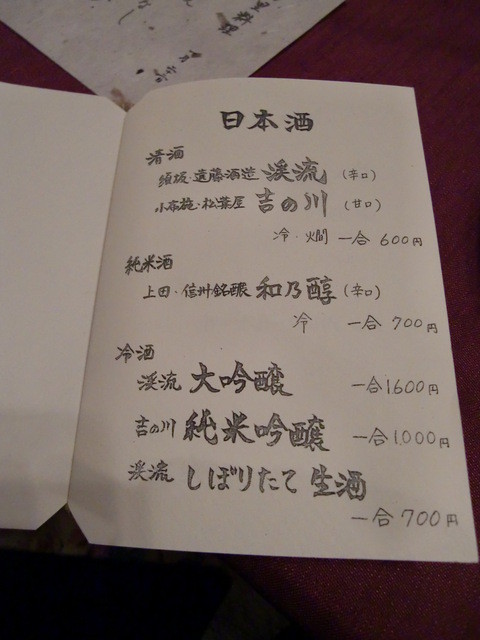 里料理
日本酒
清酒
須坂・遠藤酒造 渓流 (辛口)
小布施・松葉屋 吉の川 (甘口)
冷・燗 一合 600円
純米酒
上田・信州銘醸 和乃醇 (辛口)
冷 一合 700円
冷酒
渓流 大吟醸 一合1600円
吉の川 純米吟醸 一合1,000円
渓流 しぼりたて 生酒
一合 700円